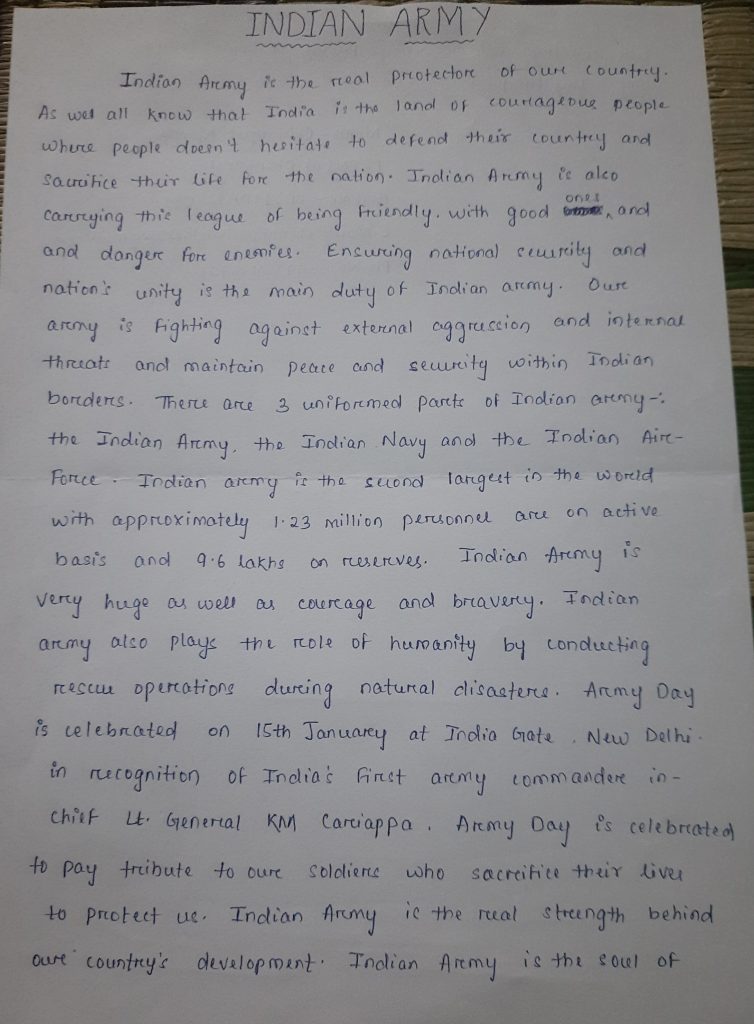 INDIAN ARMY
Indian Army is the real protector of our country.
As wel all know that India is the land of courageous people
where people doesn't hesitate to defend their country and
sacrifice their life for the nation. Indian Army is also
carrying this league of being friendly. with good ones, and
and danger for enemies. Ensuring national security and
nation's unity is the main duty of Indian army. Our
army is fighting against external aggression and internal
threats and maintain peace and security within Indian
borders. There are 3 uniformed parts of Indian army-:
the Indian Army, the Indian Navy and the Indian Air-
Force. Indian army is the second largest in the world
with approximately 1.23 million personnel are on active
basis and 9.6 lakhs on reserves. Indian Army is
very huge as well as courage and bravery. Indian
army also plays the role of humanity by conducting
rescue operations during natural disasters. Army Day
is celebrated on 15th January at India Gate, New Delhi.
in recognition of India's first army commander in-
chief Lt. General KM Cariappa. Army Day is celebrated
to pay tribute to our soldiers who sacrifice their lives
to protect us. Indian Army is the real strength behind
our country's development. Indian Army is the soul of